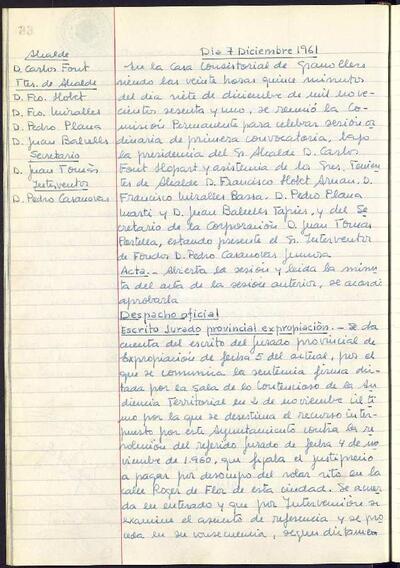 Alcalde
D. Carlos Font
Ttes. de Alcalde
D. Fco. Llobet
D. Fco. Miralles
D. Pedro Plana
D. Juan Balvells
Secretario
D. Juan Tomás
Interventor
D. Pedro Casanovas
Día 7 Diciembre 1961
En la Casa Consistorial de Granollers
siendo las veinte horas quince minutos
del día siete de diciembre de mil nove-
cientos sesenta y uno, se reunió la Co-
misión Permanente para celebrar sesión or-
dinaria de primera convocatoria, bajo
la presidencia del Sr. Alcalde D. Carlos
Font Llopart y asistencia de los Sres. Tenien-
tes de Alcalde D. Francisco Llobet Arnan, D.
Francisco Miralles Bassa, D. Pedro Plana
Martí y D. Juan Balvells Tapies, y del Se-
cretario de la Corporación D. Juan Tomás
estando presente el Sr. Interventor
de Fondos D. Pedro Casanovas
Acta.- Abierta la sesión y leída la minu-
ta del acta de la sesión anterior, se acordó
aprobarla
Despacho oficial
Escrito Jurado provincial expropiación.- Se da
cuenta del escrito del Jurado provincial de
Expropiación de fecha 5 del actual, por el
que se comunica la sentencia firme dic-
tada por la Sala de lo Contencioso de la Au-
diencia Territorial en 2 de noviembre últi-
mo por la que se desestima el recurso inter-
puesto por este Ayuntamiento contra la re-
solución del referido Jurado de fecha 4 de no-
viembre de 1.960, que fijaba el justiprecio
a pagar por desocupo del solar sito en la
calle Roger de Flor de esta ciudad. Se acuer-
da en enterado y que por Intervención se
examine el asunto de referencia y se pro-
ceda en su consecuencia, segun dictamen